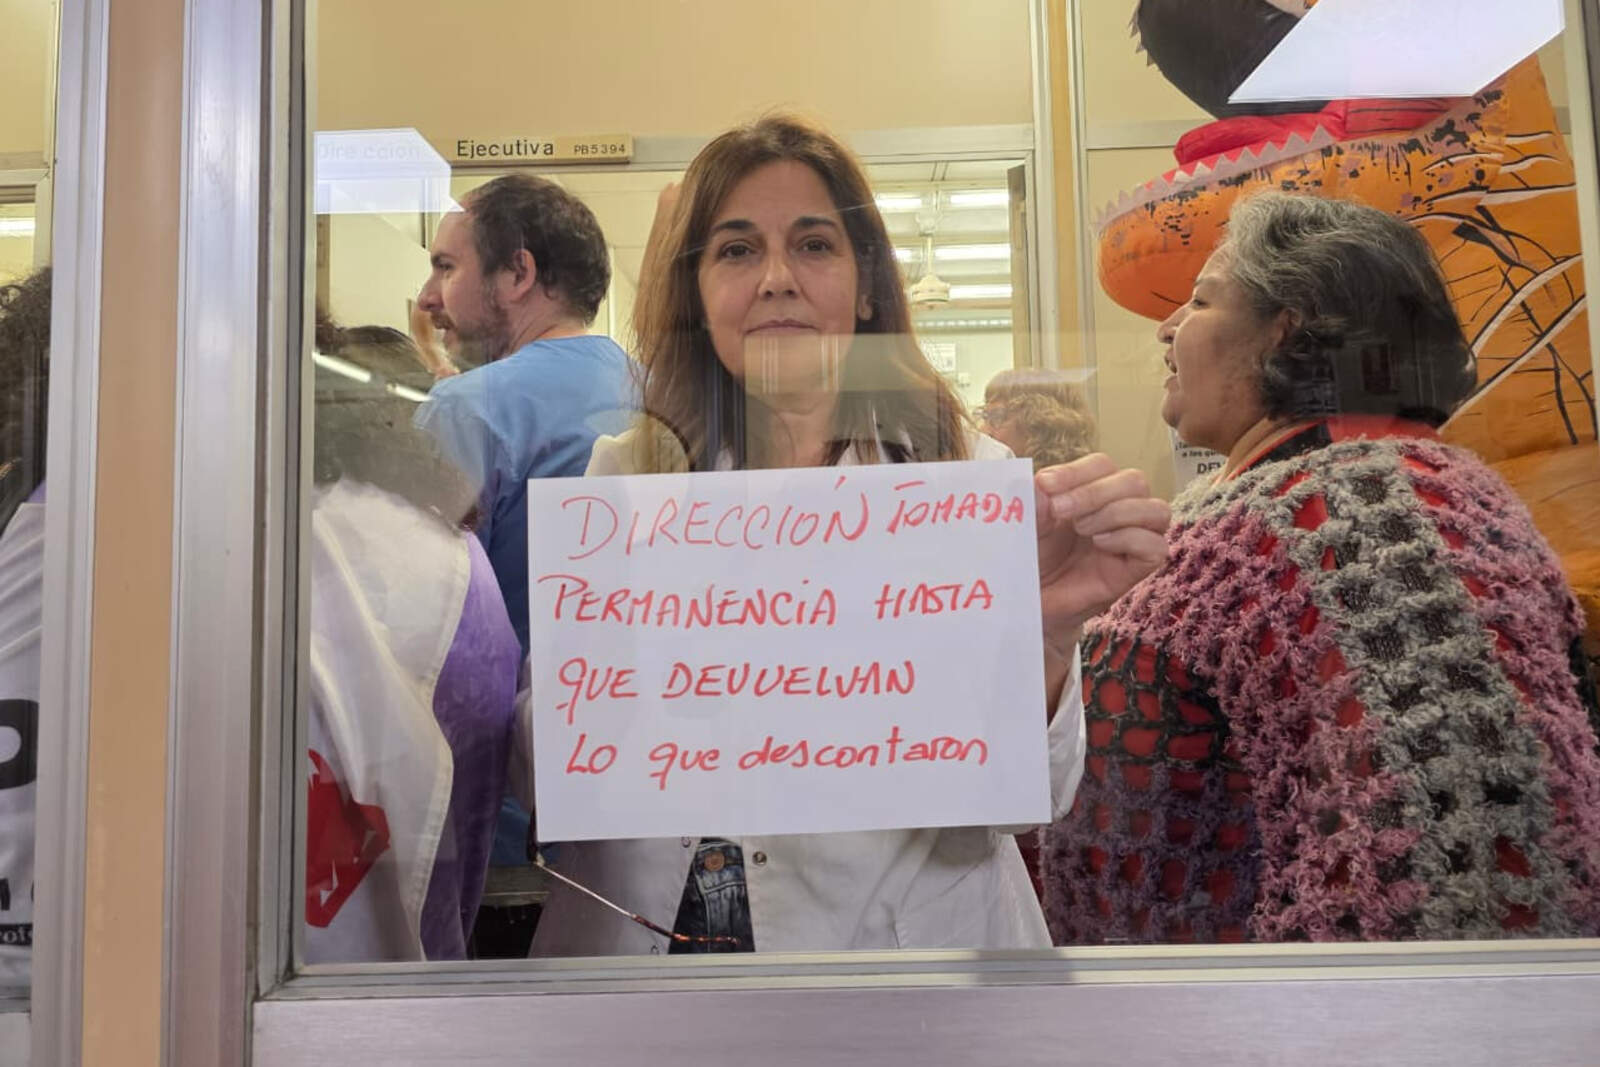 Dirección Ejecutiva PB5394
DIRECCIÓN TOMADA
PERMANENCIA HASTA
QUE DEVUELVAN
LO que descontaron